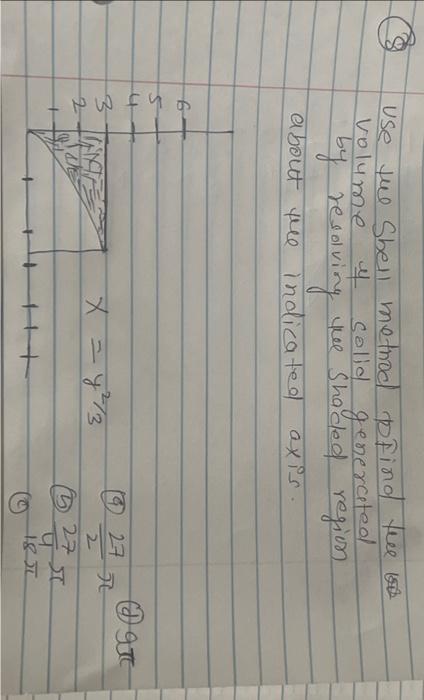 ⑧ Use the Shell method to find the
volume of solid generated
by resolving the shaded region
about the indicated axis.
6
5
4
3
2
1
x = y²/3
ⓐ 27/2 π
ⓓ 9π
ⓑ 27/4 π
ⓒ 18π